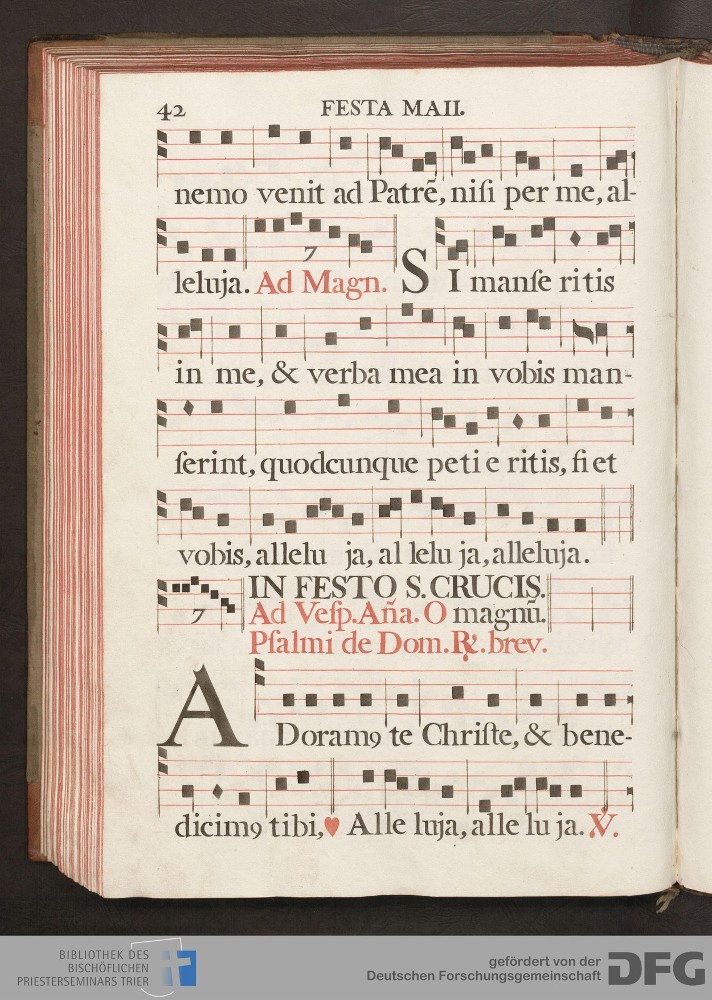 42 FESTA MAII.
nemo venit ad Patrē, niſi per me, al-
7
leluja. Ad Magn. SI manſe ritis
in me, & verba mea in vobis man-
ſerint, quodcunque peti e ritis, fi et
vobis, allelu ja, al lelu ja, alleluja.
7 IN FESTO S. CRUCIS.
Ad Veſp. Aña. O magnū.
Pſalmi de Dom. ℟. brev.
ADoramꝰ te Chriſte, & bene-
dicimꝰ tibi, ♥ Alle luja, alle lu ja. ℣.
BIBLIOTHEK DES
BISCHÖFLICHEN
PRIESTERSEMINARS TRIER
gefördert von der
Deutschen Forschungsgemeinschaft DFG